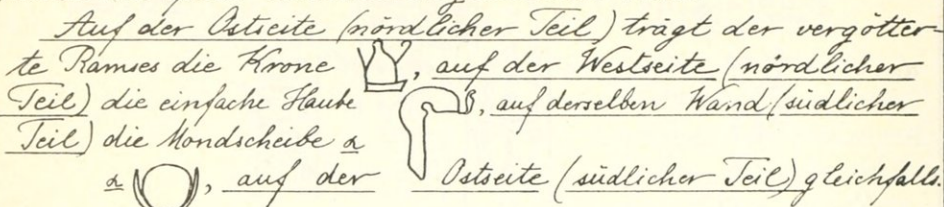 Auf der Ostseite (nördlicher Teil) trägt der vergötter-
te Ramses die Krone , auf der Westseite (nördlicher
Teil) die einfache Haube , auf derselben Wand (südlicher
Teil) die Mondscheibe α
α , auf der Ostseite (südlicher Teil) gleichfalls.